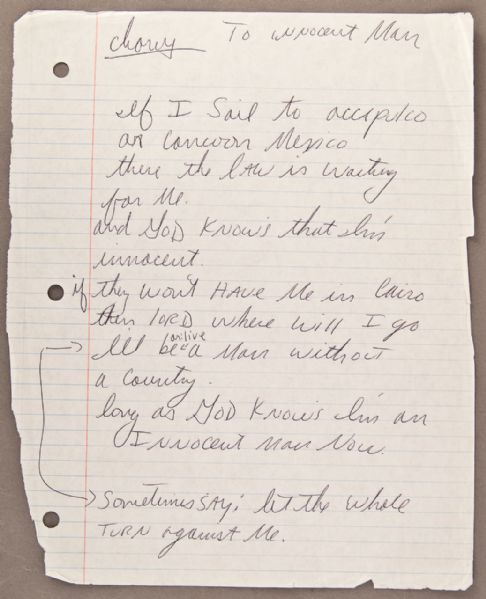 chorus To Innocent Man
If I Sail to accepulco
or Cancoon Mexico
there the law is waiting
for Me.
and GOD KNOWS that Im
innocent.
if they won't HAVE Me in Cairo
then LORD where will I go
I'll be a Man without
or live
a Country.
long as GOD KNOWS Im an
INNOCENT MAN Now.
Sometimes SAY: let the whole
TURN against Me.